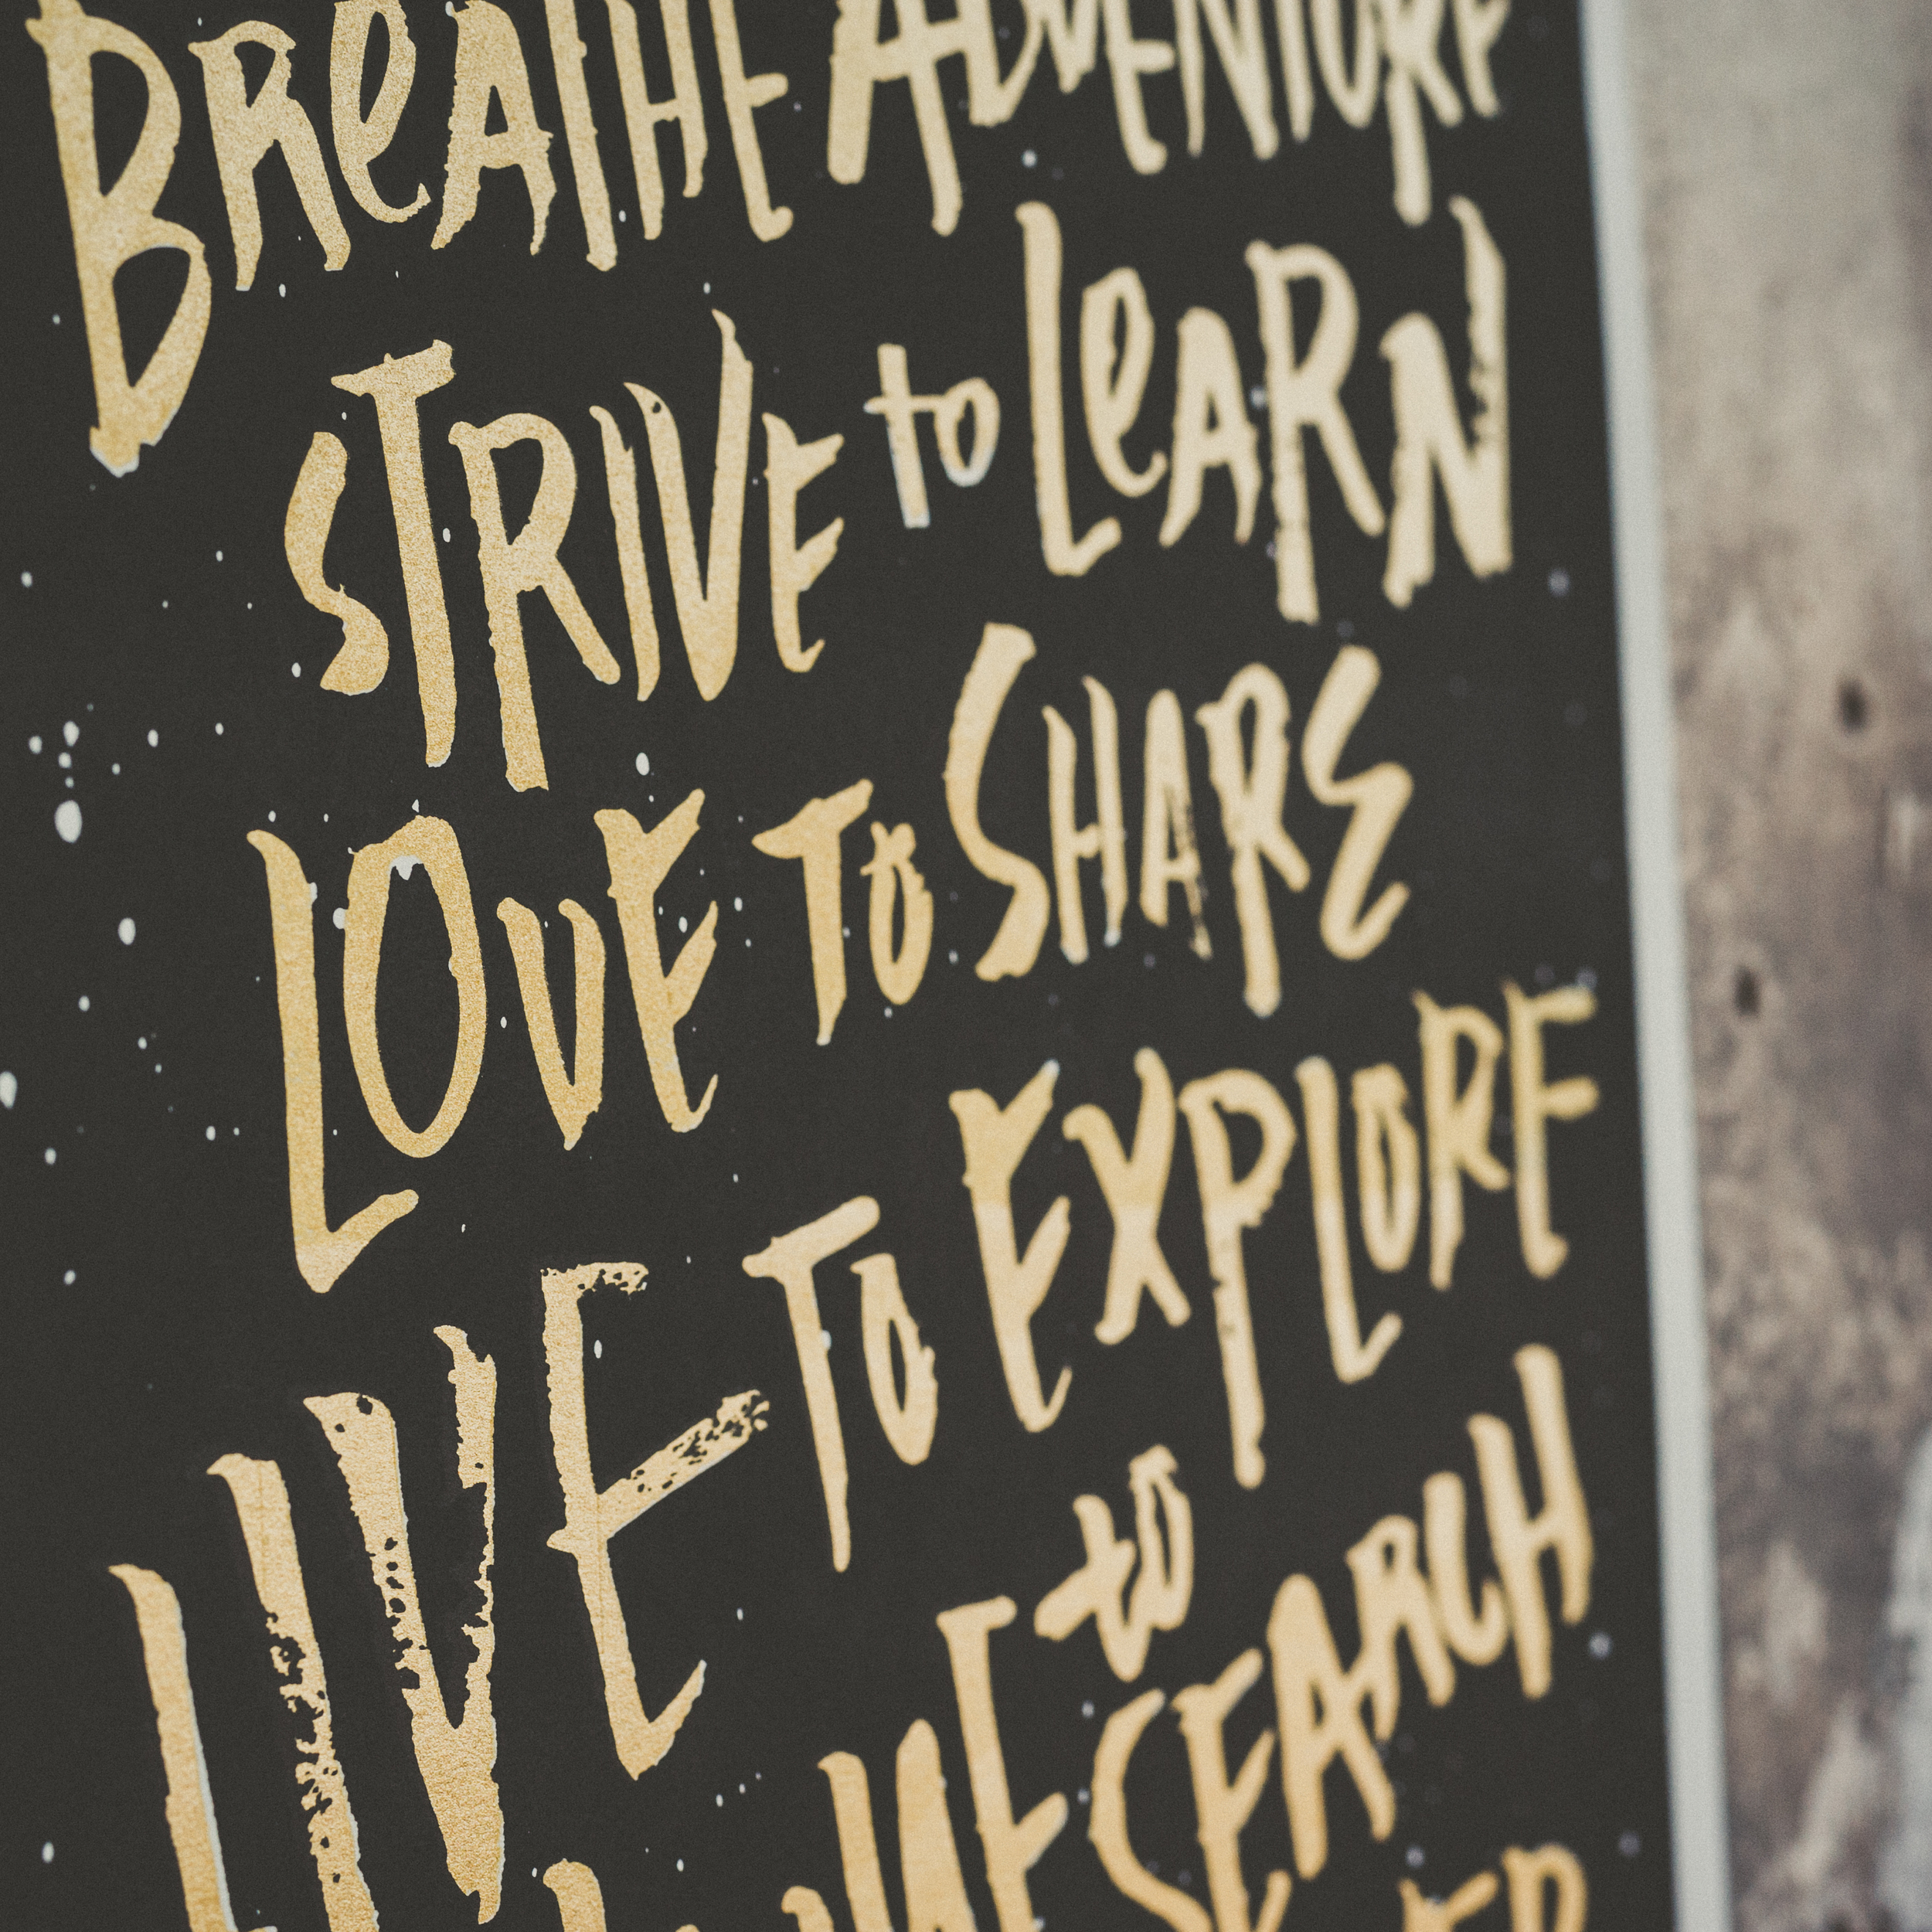 BReATHE ADVENTURE
STRIVE to LeARN
LOVE TO SHARE
LIVE TO EXPLORE
to SEARCH